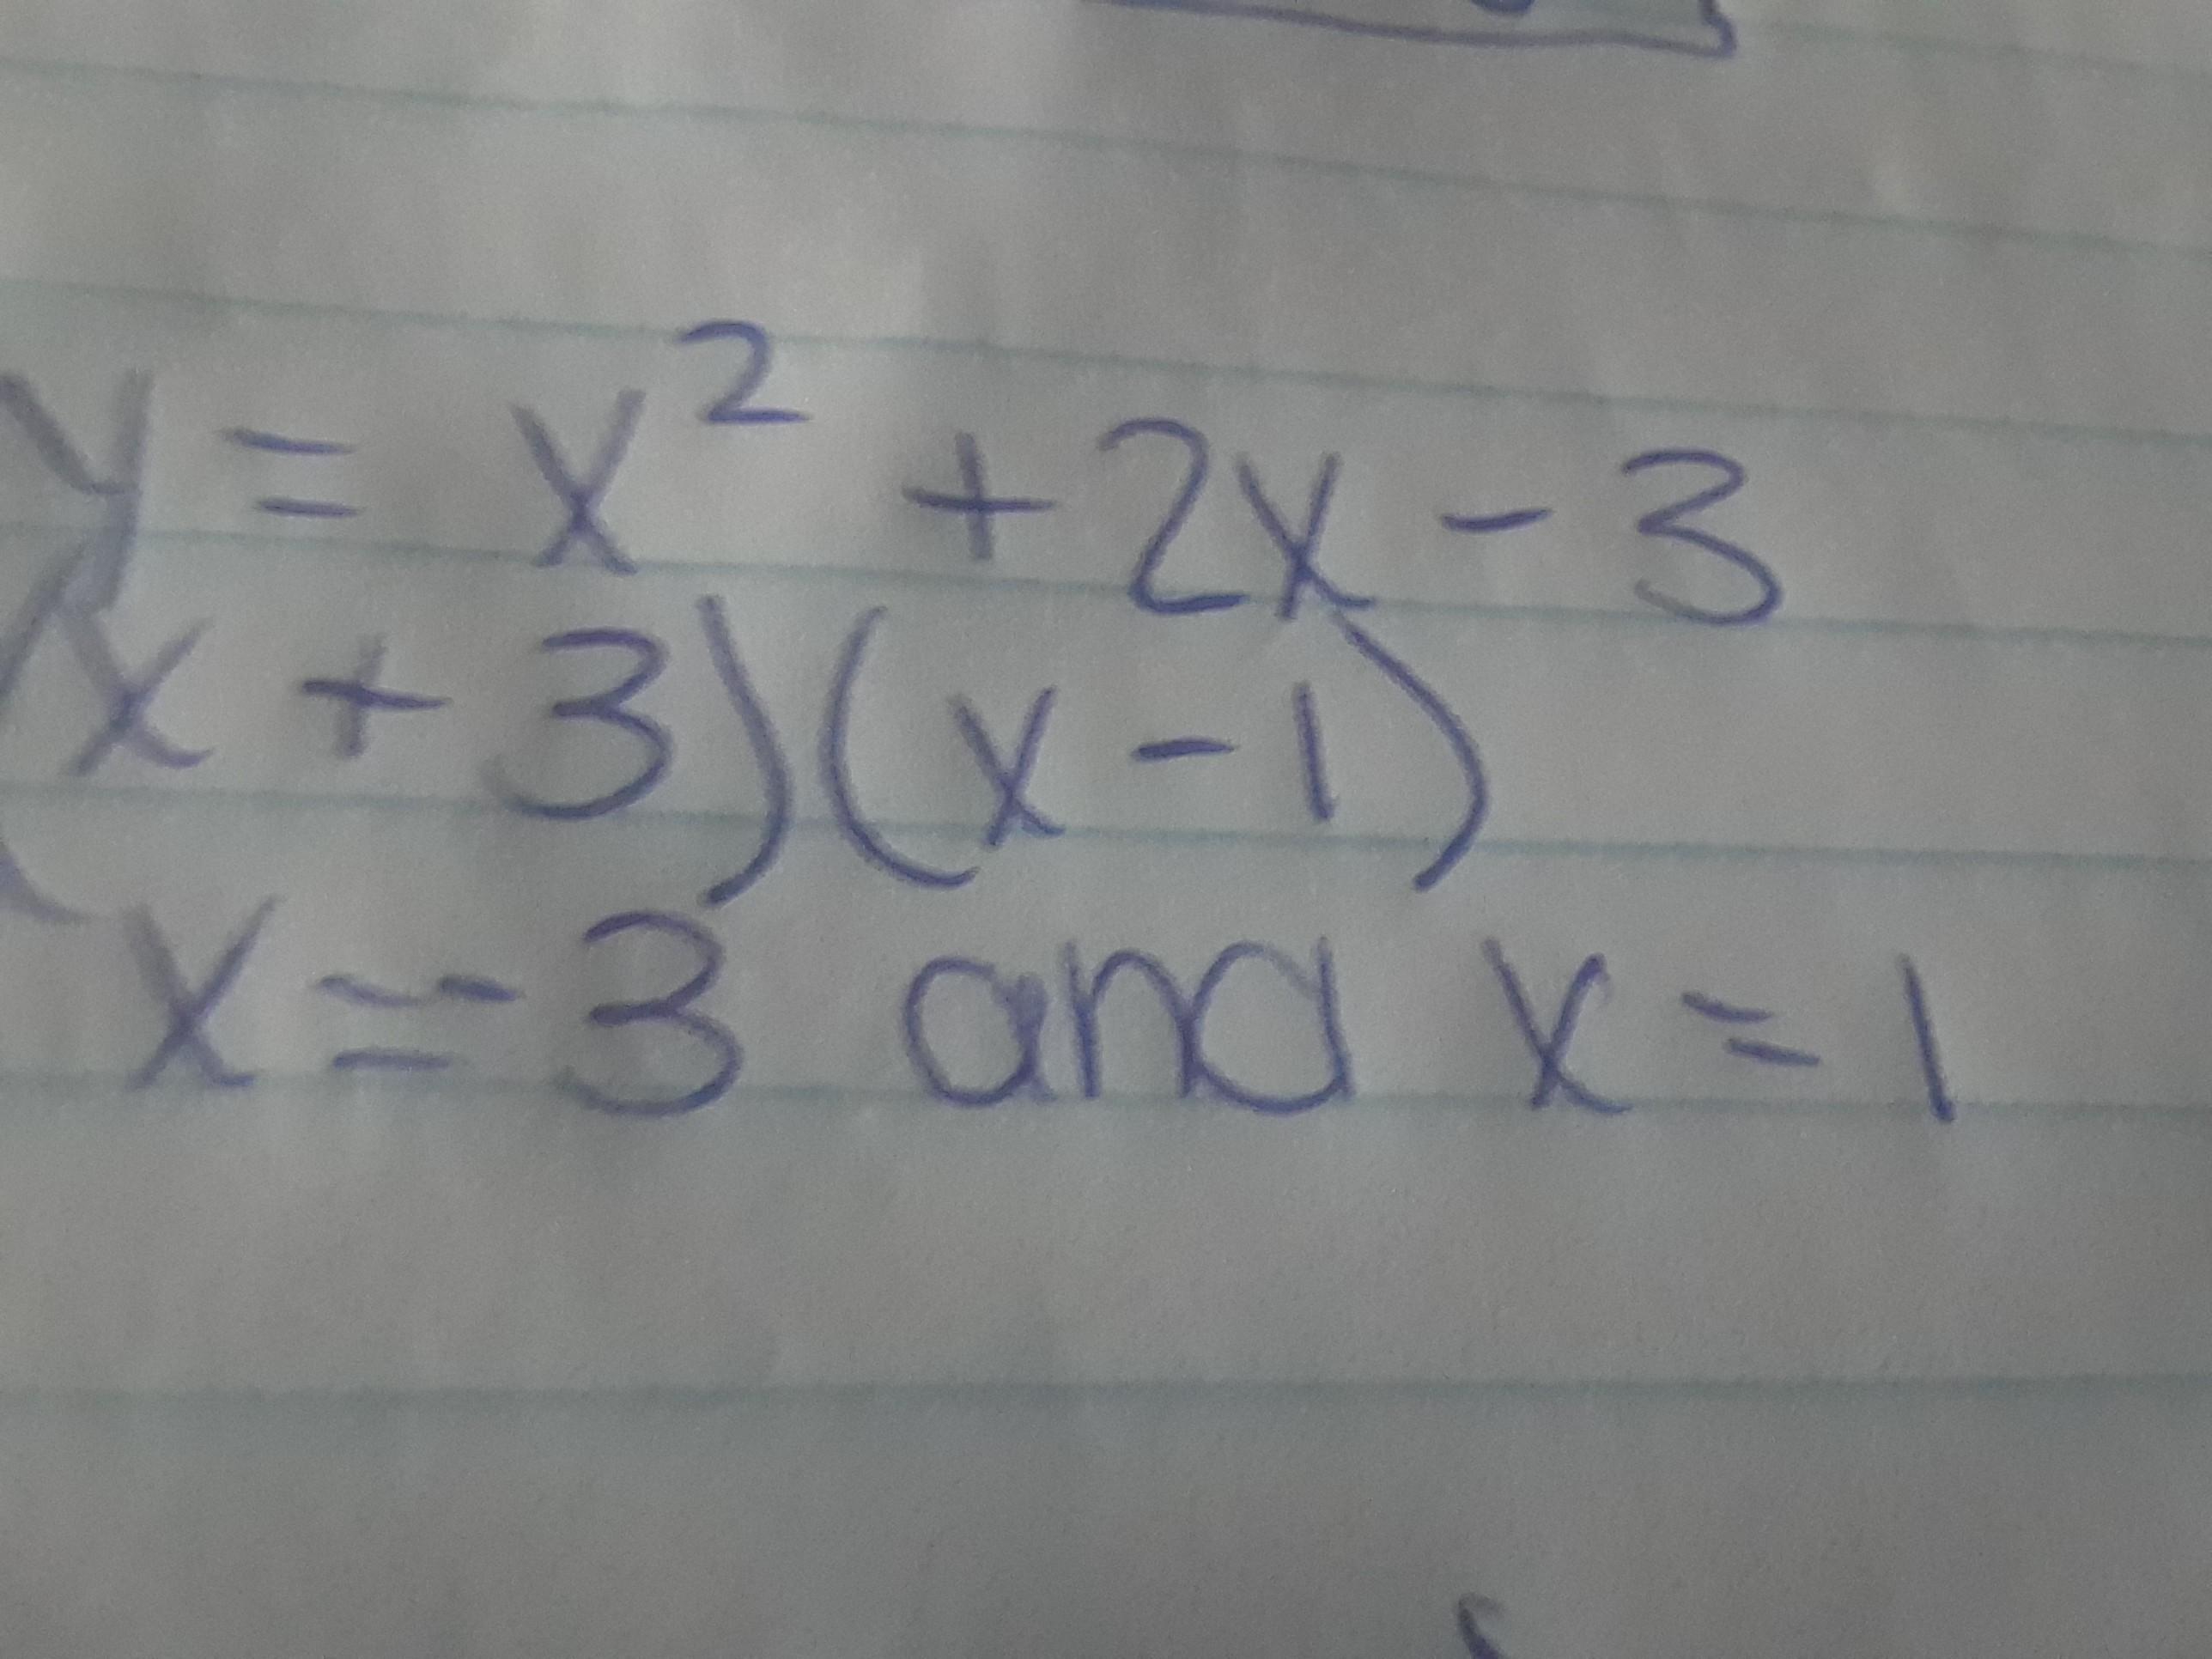 y = x² + 2x - 3
(x + 3)(x - 1)
x = -3 and x = 1